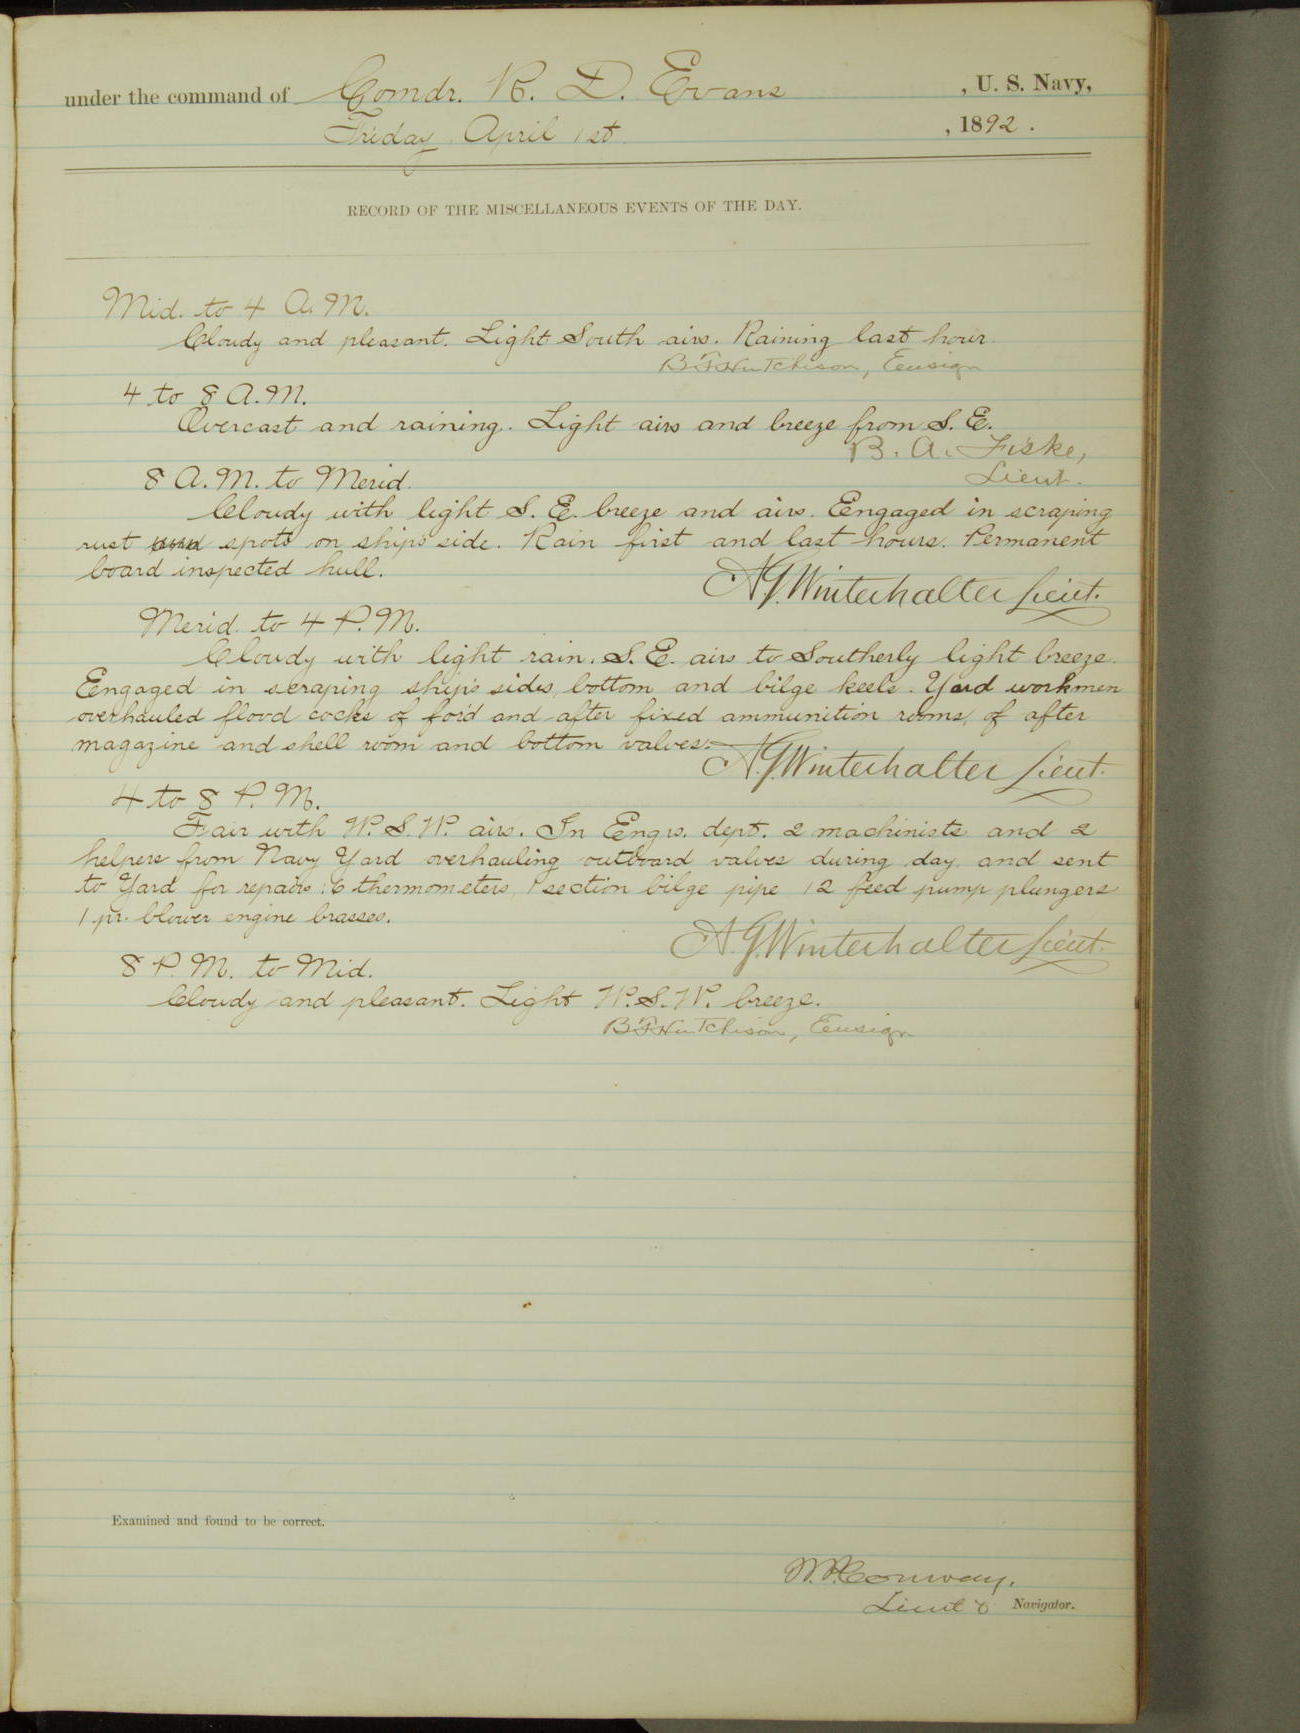 under the command of Comdr. R. D. Evans , U. S. Navy,
Friday April 1st , 1892.
RECORD OF THE MISCELLANEOUS EVENTS OF THE DAY.
Mid. to 4 A.M.
Cloudy and pleasant. Light South airs. Raining last hour.
B F Hutchison, Ensign
4 to 8 A.M.
Overcast and raining. Light airs and breeze from S. E.
B. A. Fiske,
Lieut.
8 A.M. to Merid.
Cloudy with light S. E. breeze and airs. Engaged in scraping
rust spots on ship's side. Rain first and last hours. Permanent
board inspected hull.
A. G. Winterhalter Lieut.
Merid. to 4 P.M.
Cloudy with light rain. S. E. airs to Southerly light breeze.
Engaged in scraping ship's sides, bottom and bilge keels. Yard workmen
overhauled flood cocks of for'd and after fixed ammunition rooms, of after
magazine and shell room and bottom valves.
A. G. Winterhalter Lieut.
4 to 8 P. M.
Fair with W. S. W. airs. In Engrs. dept. 2 machinists and 2
helpers from Navy Yard overhauling outboard valves during day, and sent
to Yard for repairs: 6 thermometers, 1 section bilge pipe 12 feed pump plungers
1 pr. blower engine brasses.
A. G. Winterhalter Lieut.
8 P. M. to Mid.
Cloudy and pleasant. Light W. S. W. breeze.
B F Hutchison, Ensign
Examined and found to be correct.
W. P. Conway,
Lieut & Navigator.